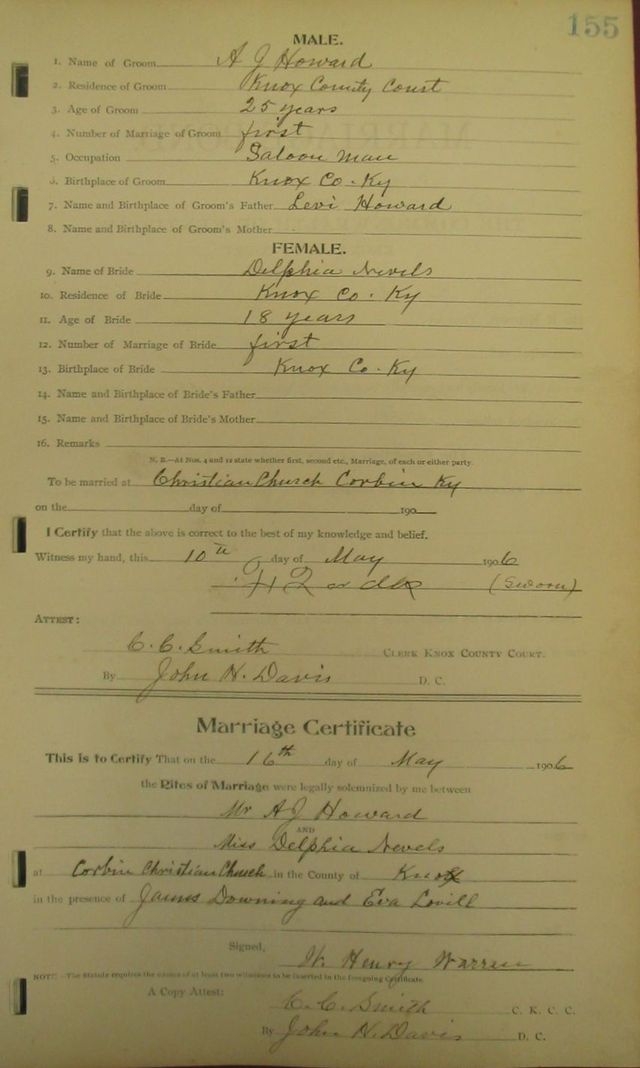 155
MALE.
1. Name of Groom A J Howard
2. Residence of Groom Knox County Court
3. Age of Groom 25 years
4. Number of Marriage of Groom first
5. Occupation Saloon man
6. Birthplace of Groom Knox Co. Ky
7. Name and Birthplace of Groom's Father Levi Howard
8. Name and Birthplace of Groom's Mother
FEMALE.
9. Name of Bride Delphia Nevels
10. Residence of Bride Knox Co. Ky
11. Age of Bride 18 years
12. Number of Marriage of Bride first
13. Birthplace of Bride Knox Co. Ky
14. Name and Birthplace of Bride's Father
15. Name and Birthplace of Bride's Mother
16. Remarks
N. B.—At Nos. 4 and 12 state whether first, second etc., Marriage, of each or either party.
To be married at Christian Church Corbin Ky
on the day of 190
I Certify that the above is correct to the best of my knowledge and belief.
Witness my hand, this 10th day of May 1906
(Sworn)
ATTEST:
C. C. Smith CLERK KNOX COUNTY COURT.
By John H. Davis D. C.
Marriage Certificate
This is to Certify That on the 16th day of May 1906
the Rites of Marriage were legally solemnized by me between
Mr A J Howard
AND
Miss Delphia Nevels
at Corbin Christian Church in the County of Knox
in the presence of James Downing and Eva Lovill
Signed,
W. Henry Warren
NOTE—The Statute requires the names of at least two witnesses to be inserted in the foregoing Certificate.
A Copy Attest:
C. C. Smith C. K. C. C.
By John H. Davis D. C.